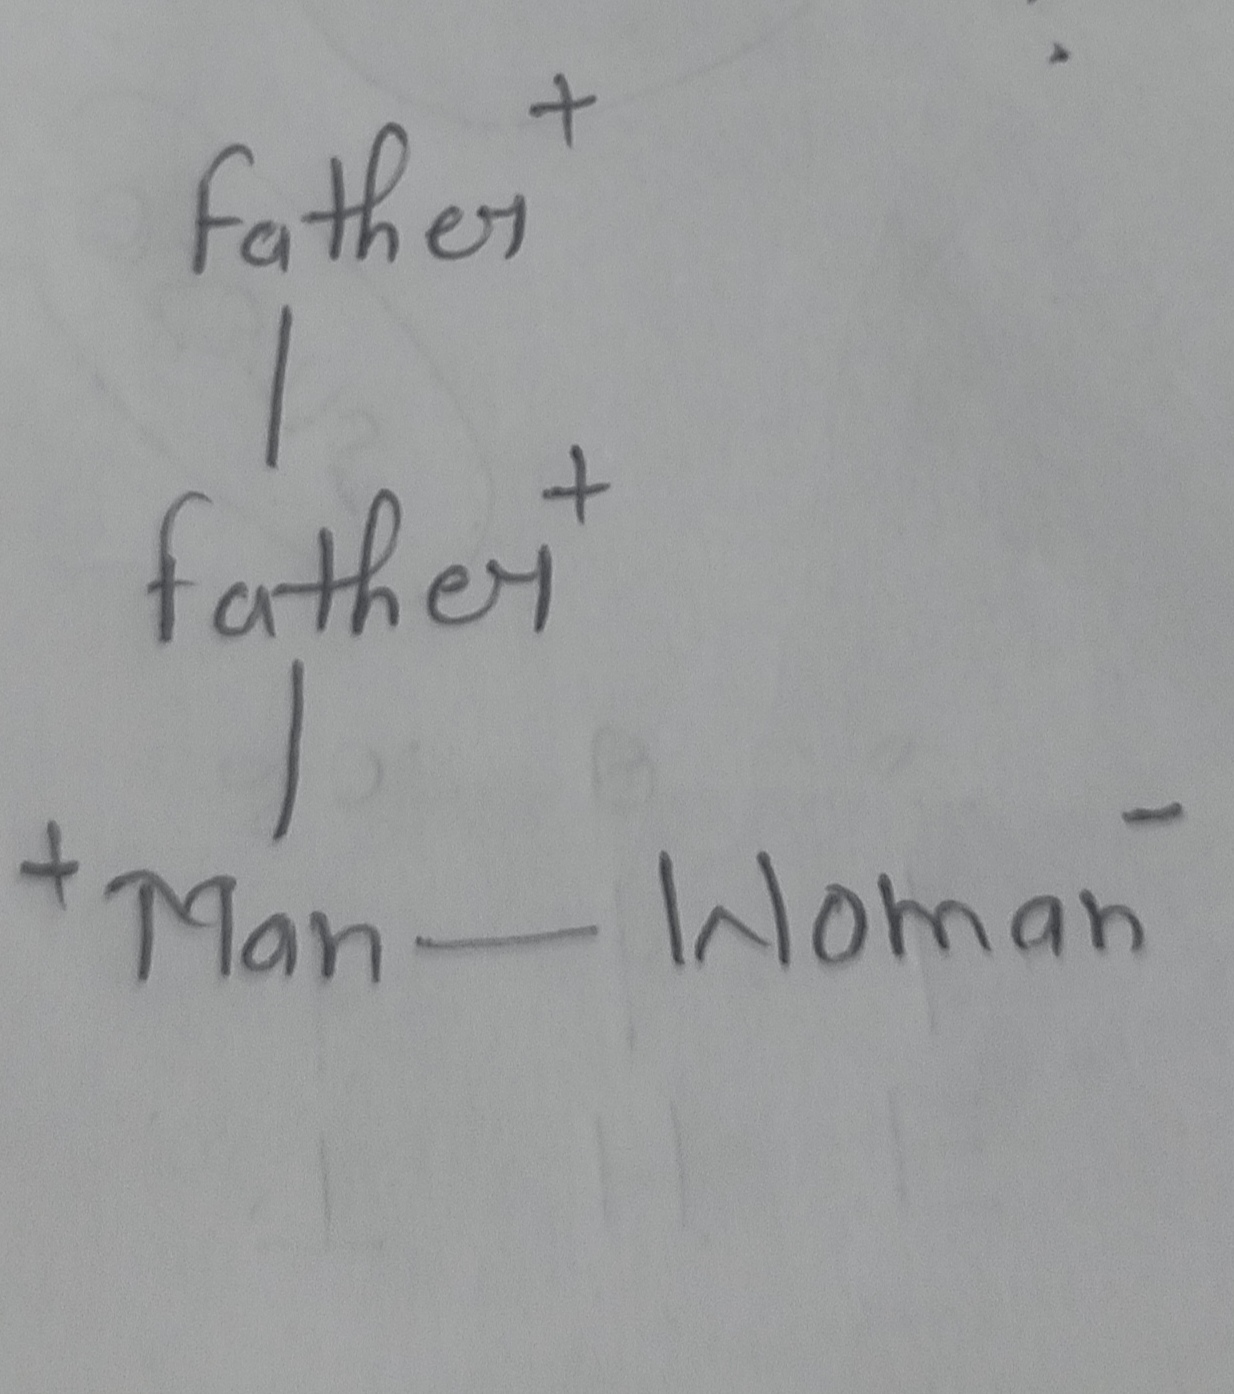 Father +
father +
+ Man — Woman -